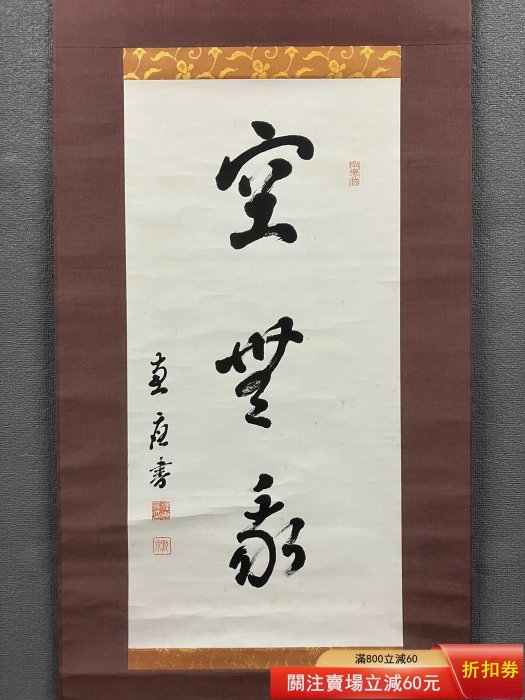 空
無
我
書
滿800立減60
關注賣場立減60元
折扣券